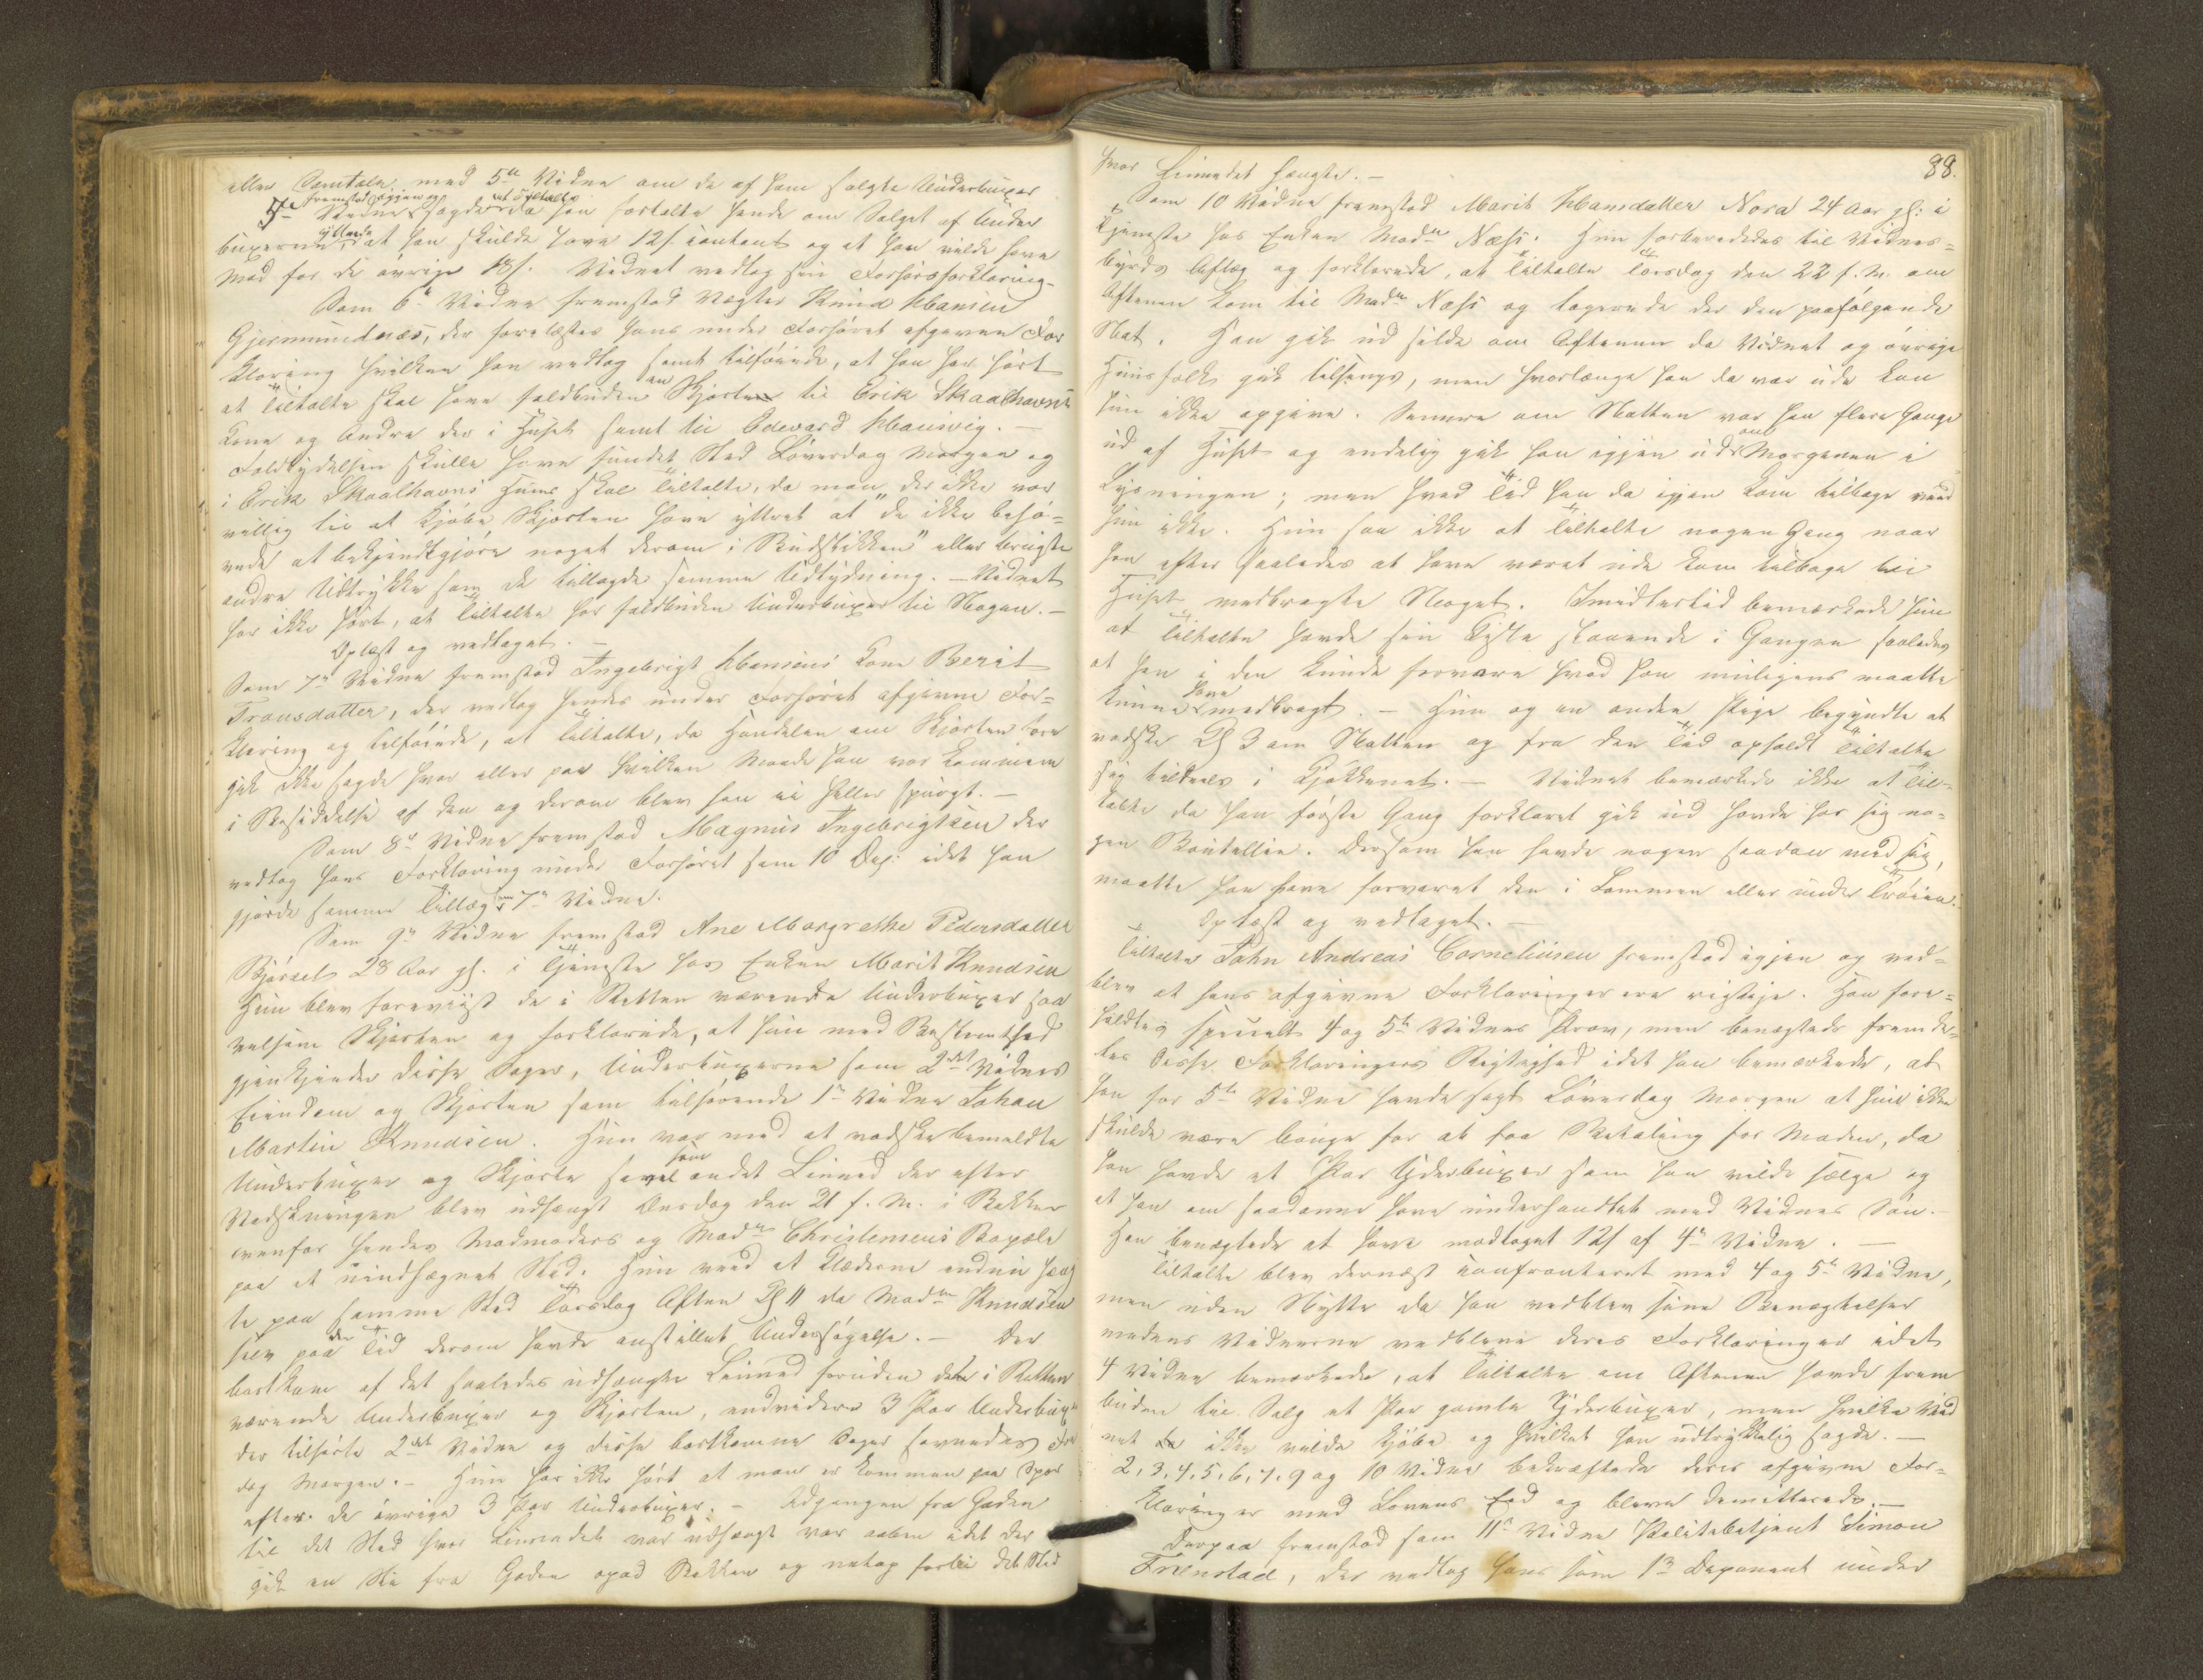 eller Samtale med 5te Vidne om de af ham solgte Underbuxer
5te Vidne fremstod igjen og sagde at Tiltalte da han fortalte hende om Salget af Under
buxerne yttrede at han skulde have 12s. contant og at han vilde have
Mad for de øvrige 18s. Vidnet vedtog sin Forhørsforklaring.
Som 6te Vidne fremstod Vægter Knud Hansen
Gjermundnæs, der forelæstes hans under Forhøret afgivne For
klaring hvilken han vedtog samt tilføiede, at han har hørt
at Tiltalte skal have falbuden en Skjorte til Erik Skaalhavns
Kone og Andre der i Huset samt til Edevard Hansvig. –
Falbydelsen skulle have fundet Sted Løverdag Morgen og
i Erik Skaalhavns Huus skal Tiltalte, da man der ikke var
villig til at kjøbe Skjorten have yttret at "de ikke behø-
vede at bekjendtgjøre noget derom i Budstikken" eller brugte
andre Udtrykke som de tillagde samme Udtydning. – Vidnet
har ikke hørt, at Tiltalte har falbuden Underbuxer til Nogen. –
Oplæst og vedtaget. –
Som 7de Vidne fremstod Ingebrigt Hansens Kone Berit
Tronsdatter, der vedtog hendes under Forhøret afgivne For-
klaring og tilføiede, at Tiltalte, da Handelen om Skjorten fore
gik ikke sagde hvor eller paa hvilken Maade han var kommen
i Besiddelse af den og derom blev han ei heller spurgt. –
Som 8de Vidne fremstod Magnus Ingebrigtsen der
vedtog hans Forklaring under Forhøret som 10 Dep: idet han
gjorde samme Tillæg som 7de Vidne.
Som 9de Vidne fremstod Ane Margrethe Pedersdatter
Skjørset 28 Aar gl. i Tjeneste hos Enken Marit Knudsen
Hun blev foreviist de i Retten værende Underbuxer saa
velsom Skjorten og forklarede, at hun med Bestemthed
gjenkjender disse Sager, Underbuxerne som 2det Vidnes
Eiendom og Skjorten som tilhørende 1ste Vidne Johan
Martin Knudsen. Hun var med at vadske bemeldte
Underbuxer og Skjorte samt andet Linned der efter
Vadskningen blev udhængt Onsdag den 21 f. M. i Bakken
ovenfor hendes Madmoders og Madm Christensens Bopæle
paa et uindhægnet Sted. Hun veed at Klæderne endnu hæng
te paa samme Sted Torsdag Aften Kl 11 da Madm Knudsen
selv paa den Tid derom havde anstillet Undersøgelse. – Der
bortkom af det saaledes udhængte Linned foruden de i Retten
værende Underbuxer og Skjorten, endvidere 3 Par Underbuxer
der tilhørte 2det Vidne og disse bortkomne Sager savnedes Fre
dag Morgen. – Hun har ikke hørt at man er kommen paa Spor
efter de øvrige 3 Par Underbuxer. – Adgangen fra Gaden
til det Sted hvor Linnedet var udhængt var aaben idet der
gik en Sti fra Gaden opad Bakken og netop forbi det Sted
88.
hvor Linnedet hængte. –
Som 10 Vidne fremstod Marit Hansdatter Nora 24 Aar gl: i
Tjeneste hos Enken Madm Næss. Hun forberededes til Vidnes-
byrds Aflæg og forklarede, at Tiltalte Torsdag den 22 f. M. om
Aftenen kom til Madm Næss og logerede der den paafølgende
Nat. Han gik ud silde om Aftenen da Vidnet og øvrige
Huusfolk gik tilsengs, men hvorlænge han da var ude kan
hun ikke opgive. Senere om Natten var han flere Gange
ud af Huset og endelig gik han igjen ud om Morgenen i
Lysningen; men hvad Tid han da igjen kom tilbage veed
hun ikke. Hun saa ikke at Tiltalte nogen Gang naar
han efter saaledes at have været ude kom tilbage til
Huset medbragte Noget. Imidlertid bemærkede hun
at Tiltalte havde sin Kiste staaende i Gangen saaledes
at han i den kunde forvare hvad han muligens maatte
kunne have medbragt. – Hun og en anden Pige begyndte at
vadske Kl 3 om Natten og fra den Tid opholdt Tiltalte
sig tildeels i Kjøkkenet. – Vidnet bemærkede ikke at Til-
talte da han første Gang forklaret gik ud havde hos sig no-
gen Bouteille. Dersom han havde nogen saadan med sig,
maatte han have forvaret den i Lommen eller under Trøien.
Oplæst og vedtaget. –
Tiltalte John Andreas Corneliusen fremstod igjen og ved-
blev at hans afgivne Forklaringer ere rigtige. Han fore-
holdtes specielt 4 og 5te Vidnes Prov, men benægtede fremde-
les disse Forklaringers Rigtighed idet han bemærkede, at
han for 5te Vidne havde sagt Løverdag Morgen at hun ikke
skulde være bange for at faa Betaling for Maden, da
han havde et Par Yderbuxer som han vilde sælge og
at han om saadanne have underhandlet med Vidnes Søn. –
Han benægtede at have modtaget 12s af 4de Vidne. –
Tiltalte blev dernæst confronteret med 4 og 5te Vidne,
men uden Nytte da han vedblev sine Benægtelser
medens Vidnerne vedbleve deres Forklaringer idet
4 Vidne bemærkede, at Tiltalte om Aftenen havde frem
buden til Salg et Par gamle Yderbuxer, men hvilke Vid
net ikke vilde kjøbe og hvilket han udtrykkelig sagde. –
2, 3, 4, 5, 6, 7, 9 og 10 Vidne bekræftede deres afgivne For-
klaringer med Lovens Eed og bleve demitterede. –
Derpaa fremstod som 11te Vidne Politibetjent Simon
Frenstad, der vedtog hans som 13 Deponent under